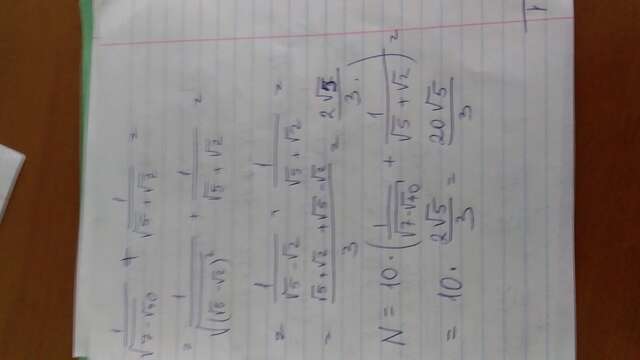 1/√(7-√40) + 1/(√5+√2) =
= 1/√((√5-√2)²) + 1/(√5+√2) =
= 1/(√5-√2) + 1/(√5+√2) =
= (√5+√2+√5-√2)/3 = 2√5/3.
N = 10·(1/√(7-√40) + 1/(√5+√2)) =
= 10·2√5/3 = 20√5/3